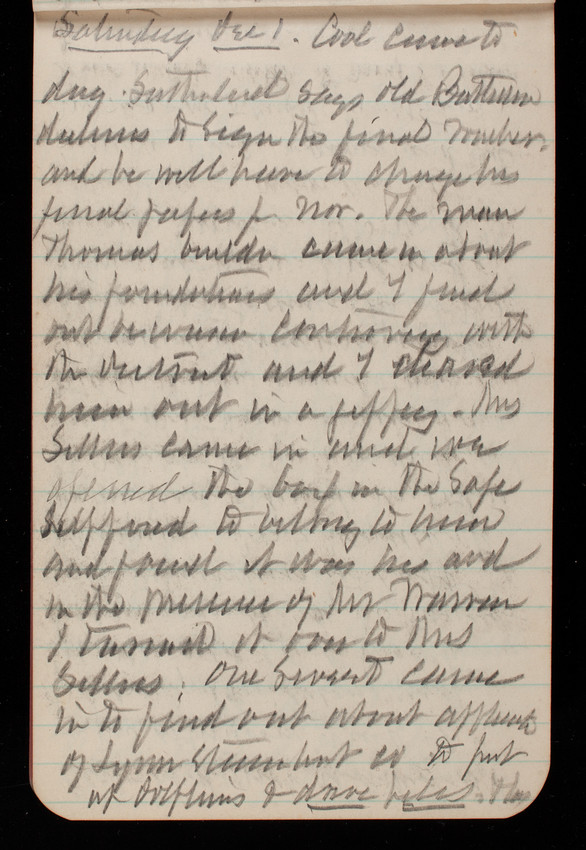 Saturday Dec 1. Cool came to
day. Sutherland says old Batterson
declines to sign the final voucher,
and he will have to change his
final papers for Nov. The man
Thomas builder came in about
his foundations and I find
out he was in controversy with
the District and I cleared
him out in a jiffey. Mrs
Sellers came in and we
opened the box in the Safe
supposed to belong to him
and found it was his and
in the presence of Mr Warren
I turned it over to Mrs
Sellers. One came
in to find out about
of Lynn Steamboat co to put
up dolphins & drive piles. They